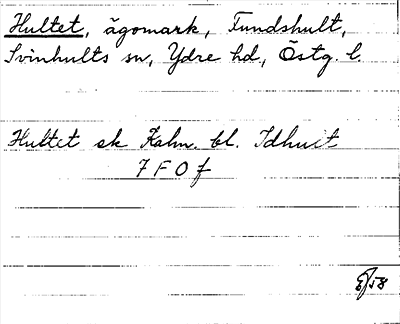 Hultet, ägomark, Fundshult,
Svinhults sn, Ydre hd, Östg. l.
Hultet sk Kalm. bl. Idhult
7 F 0 f